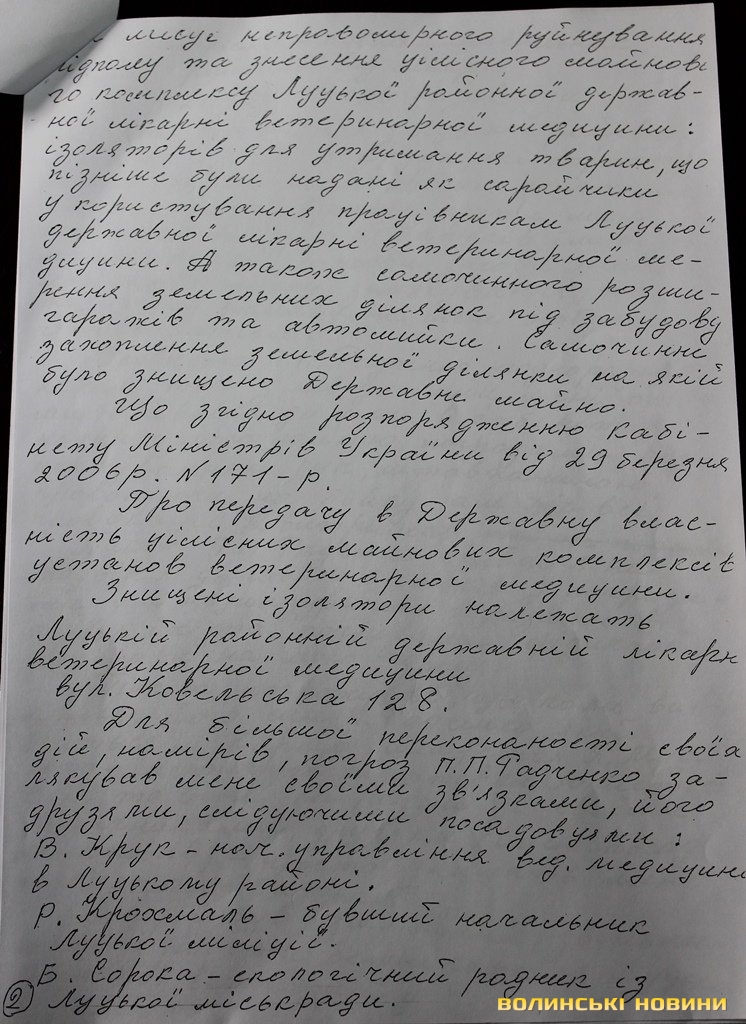 лисує неправомирного руйнування
підпому та знесення цілісного майнов
го комплексу Луцької районної держав-
ної лікарні ветеринарної медицини:
ізоляторів для утримання тварин, що
пізніше були надані як сарайчики
у користування працівникам Луцької
державної лікарні ветеринарної ме-
дицини. А також самочинного розши-
рення земельних ділянок під забудову
гаражів та автомийки. Самочинне
захоплення земельної ділянки на якій
було знищено Державне майно.
Що згідно розпорядженню Кабі-
нету Міністрів України від 29 березня
2006р. N171-р.
Про передачу в Державну влас-
ність цілісних майнових комплексів
установ ветеринарної медицини.
Знищені ізолятори належать
Луцькій районній державній лікарн
ветеринарної медицини
вул. Ковельська 128.
Для більшої переконаності своїх
дій, намірів, погроз П.П. Гадченко за-
лякував мене своїми зв'язками, його
друзями, слідуючими посадовцями:
В. Крук - нач. управління вед. медицини
в Луцькому районі.
Р. Крохмаль - бувший начальник
Луцької міліції.
Б. Сорока - екологічний радник із
2 Луцької міськради.
ВОЛИНСЬКІ НОВИНИ